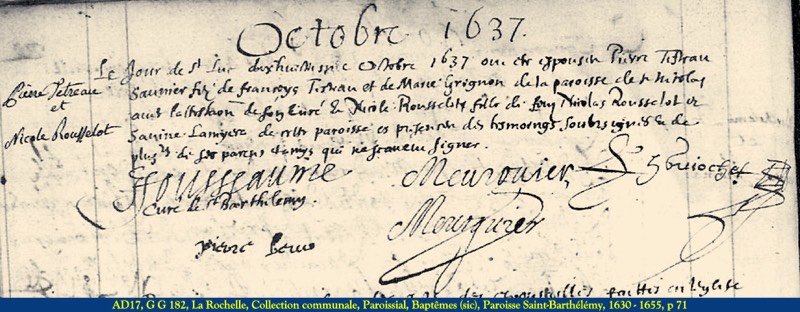 Octobre 1637.
Pierre Tetreau
et
Nicole Rousselot
Le Jour de St Luc dixhuictiesme Octobre 1637 ont este espousez Pierre Tetreau
Saunier filz de Francoys Tetreau et de Marie Grignon de la paroisse de St Nicolas
avec l'attestaon de son Curé & Nicole Rousselot fille de feu Nicolas Rousselot et
de cette paroisse es presences des tesmoings soubsignes & de
plusrs de ses parens & amys qui ne scavent signer.
JFousseaume
Curé de St Barthelemy.
Meusnier
Guiochet
pierre
en leglise
AD17, G G 182, La Rochelle, Collection communale, Paroissial, Baptêmes (sic), Paroisse Saint-Barthélémy, 1630 - 1655, p 71